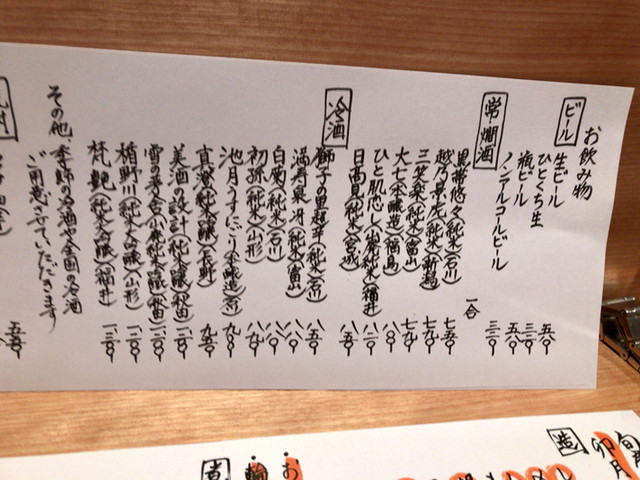 お飲み物
ビール
生ビール 五五〇
ひとくち生 三三〇
瓶ビール 五八〇
ノンアルコールビール 三三〇
常・燗酒
一合
黒帯悠々(純米)石川 七五〇
越乃景虎(純米)新潟 七九〇
三笑楽(純米)富山 七九〇
大七(本醸造)福島 八〇〇
ひと肌恋し(山廃純米)福井
日高見(純米)宮城 八五〇
冷酒
獅子の里超辛(純米)石川 八五〇
満寿泉 (純米)富山 八一〇
白鷹(純米)石川 八〇〇
初孫(純米)山形 八七〇
池月うすにごり(本醸造)石川 九〇〇
真澄(純米吟醸)長野 九五〇
美酒の設計(純米吟醸)秋田
雪の茅舎(山廃純米吟醸)秋田
楯野川(純米大吟醸)山形
梵 艶(純米大吟醸)福井
その他、季節の酒や全国の名酒
ご用意させていただきます
旬
卯月
造
お